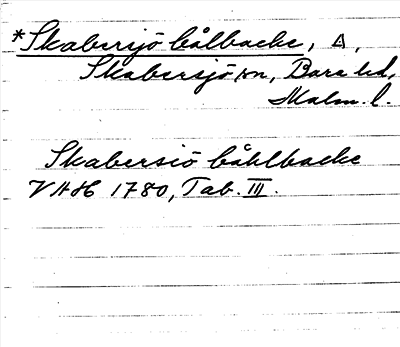 *Skabersjö bålbacke, △,
Skabersjö sn, Bara hd,
Malm. l.
Skabersiö båhlbacke
VAH 1780, Tab. III.